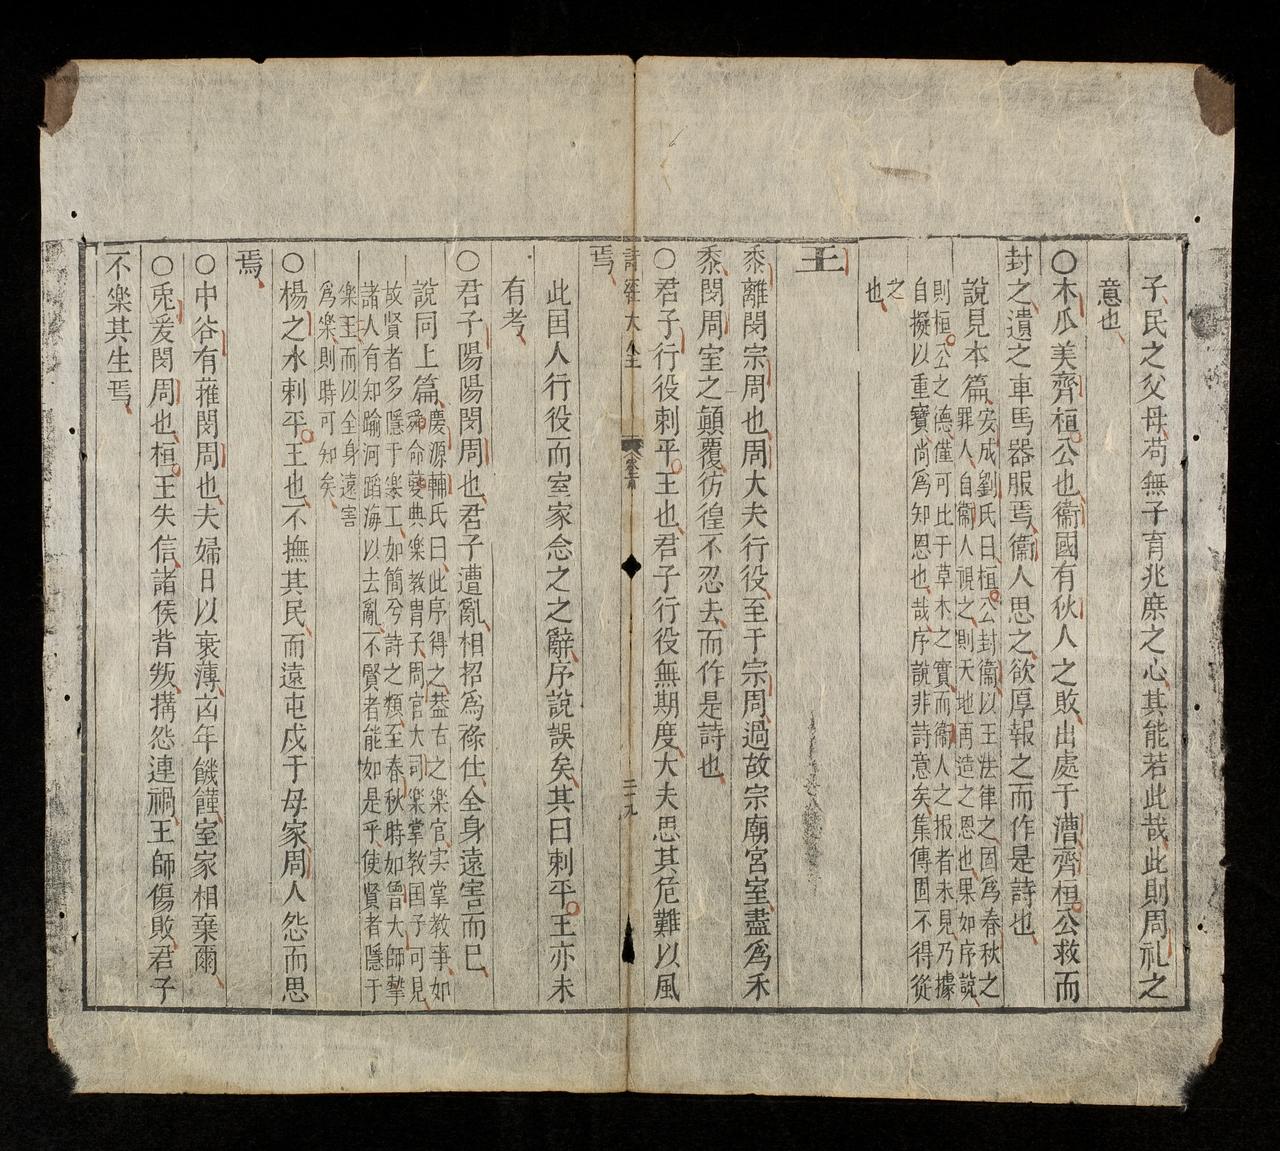 子民之父母苟無子育兆庶之心其能若此哉此則周礼之
意也
○木瓜美齊桓公也衞國有狄人之敗出處于漕齊桓公救而
封之遺之車馬器服焉衞人思之欲厚報之而作是詩也
說見本篇
安成劉氏曰桓公封衞以王法律之固為春秋之
罪人自衞人視之則天地再造之恩也果如序說
則桓公之德僅可比于草木之實而衞人之报者未見乃據
自擬以重寶尚為知恩也哉序說非詩意矣集傳固不得從
之
也
王
黍離閔宗周也周大夫行役至于宗周過故宗廟宮室盡為禾
黍閔周室之顛覆彷徨不忍去而作是詩也
○君子行役刺平王也君子行役無期度大夫思其危難以風
詩經大全
二十九
焉
此国人行役而室家念之之辭序說誤矣其曰刺平王亦未
有考
○君子陽陽閔周也君子遭亂相招為祿仕全身遠害而已
說同上篇
慶源輔氏曰此序得之葢古之樂官实掌教事如
舜命夔典樂教胄子周官大司樂掌教国子可見
故賢者多隱于樂工如簡兮詩之類至春秋時如魯大師摯
諸人有知踰河蹈海以去亂不賢者能如是乎使賢者隱于
樂王而以全身遠害
為樂則時可知矣
○楊之水刺平王也不撫其民而遠屯戍于母家周人怨而思
焉
○中谷有蓷閔周也夫婦日以衰薄凶年饑饉室家相棄爾
○兎爰閔周也桓王失信諸侯背叛搆怨連禍王師傷敗君子
不樂其生焉